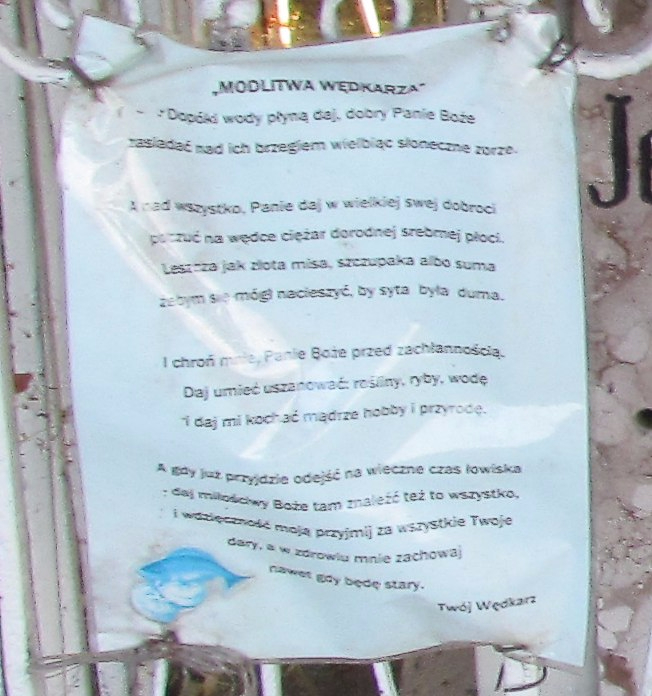 „MODLITWA WĘDKARZA"
Dopóki wody płyną daj, dobry Panie Boże
zasiadać nad ich brzegiem wielbiąc słoneczne zorze.
A nad wszystko, Panie daj w wielkiej swej dobroci
poczuć na wędce ciężar dorodnej srebrnej płoci.
Leszcza jak złota misa, szczupaka albo suma
żebym się mógł nacieszyć, by syta była duma.
I chroń mnie, Panie Boże przed zachłannością.
Daj umieć uszanować: rośliny, ryby, wodę
i daj mi kochać mądrze hobby i przyrodę.
A gdy już przyjdzie odejść na wieczne czas łowiska
daj miłościwy Boże tam znaleźć też to wszystko,
i wdzięczność moją przyjmij za wszystkie Twoje
dary, a w zdrowiu mnie zachowaj
nawet gdy będę stary.
Twój Wędkarz